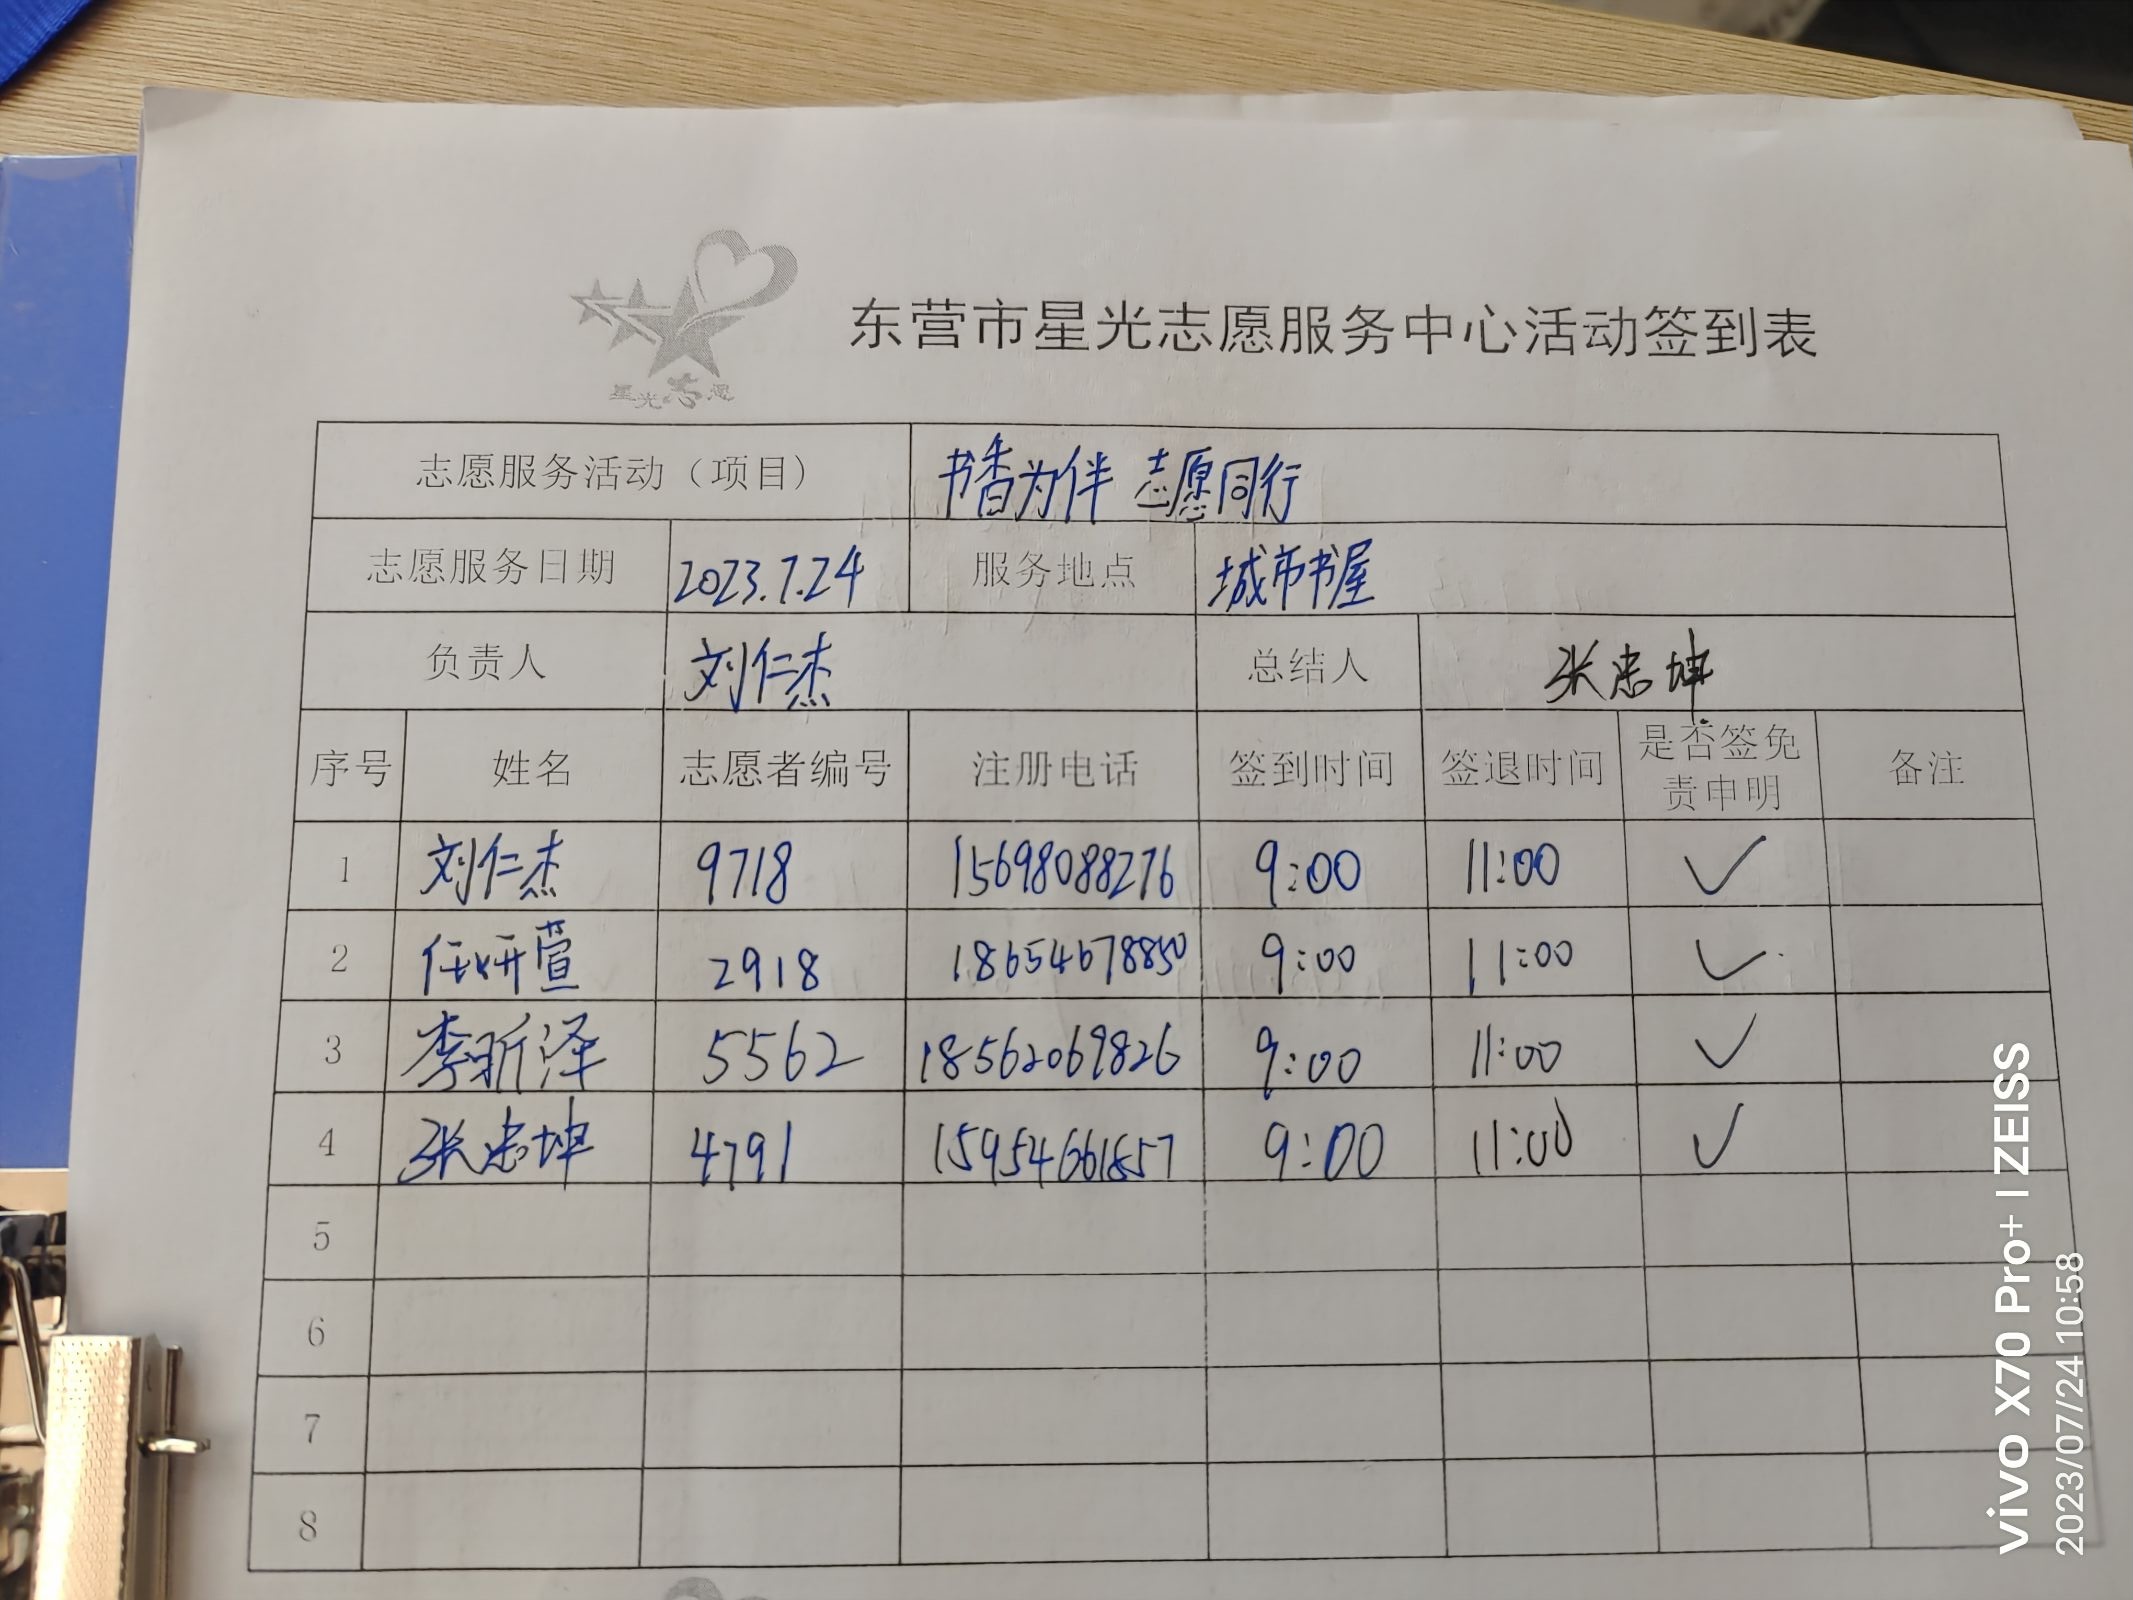 星光志愿
东营市星光志愿服务中心活动签到表
志愿服务活动（项目） 书香为伴 志愿同行
志愿服务日期 2023.7.24 服务地点 城市书屋
负责人 刘仁杰 总结人 张忠坤
序号 姓名 志愿者编号 注册电话 签到时间 签退时间 是否签免责申明 备注
1 刘仁杰 9718 15698088276 9:00 11:00 ✓
2 任妍萱 2918 18654678850 9:00 11:00 ✓
3 李昕泽 5562 18562069826 9:00 11:00 ✓
4 张忠坤 4791 15954661657 9:00 11:00 ✓
5
6
7
8
vivo X70 Pro+ | ZEISS
2023/07/24 10:58